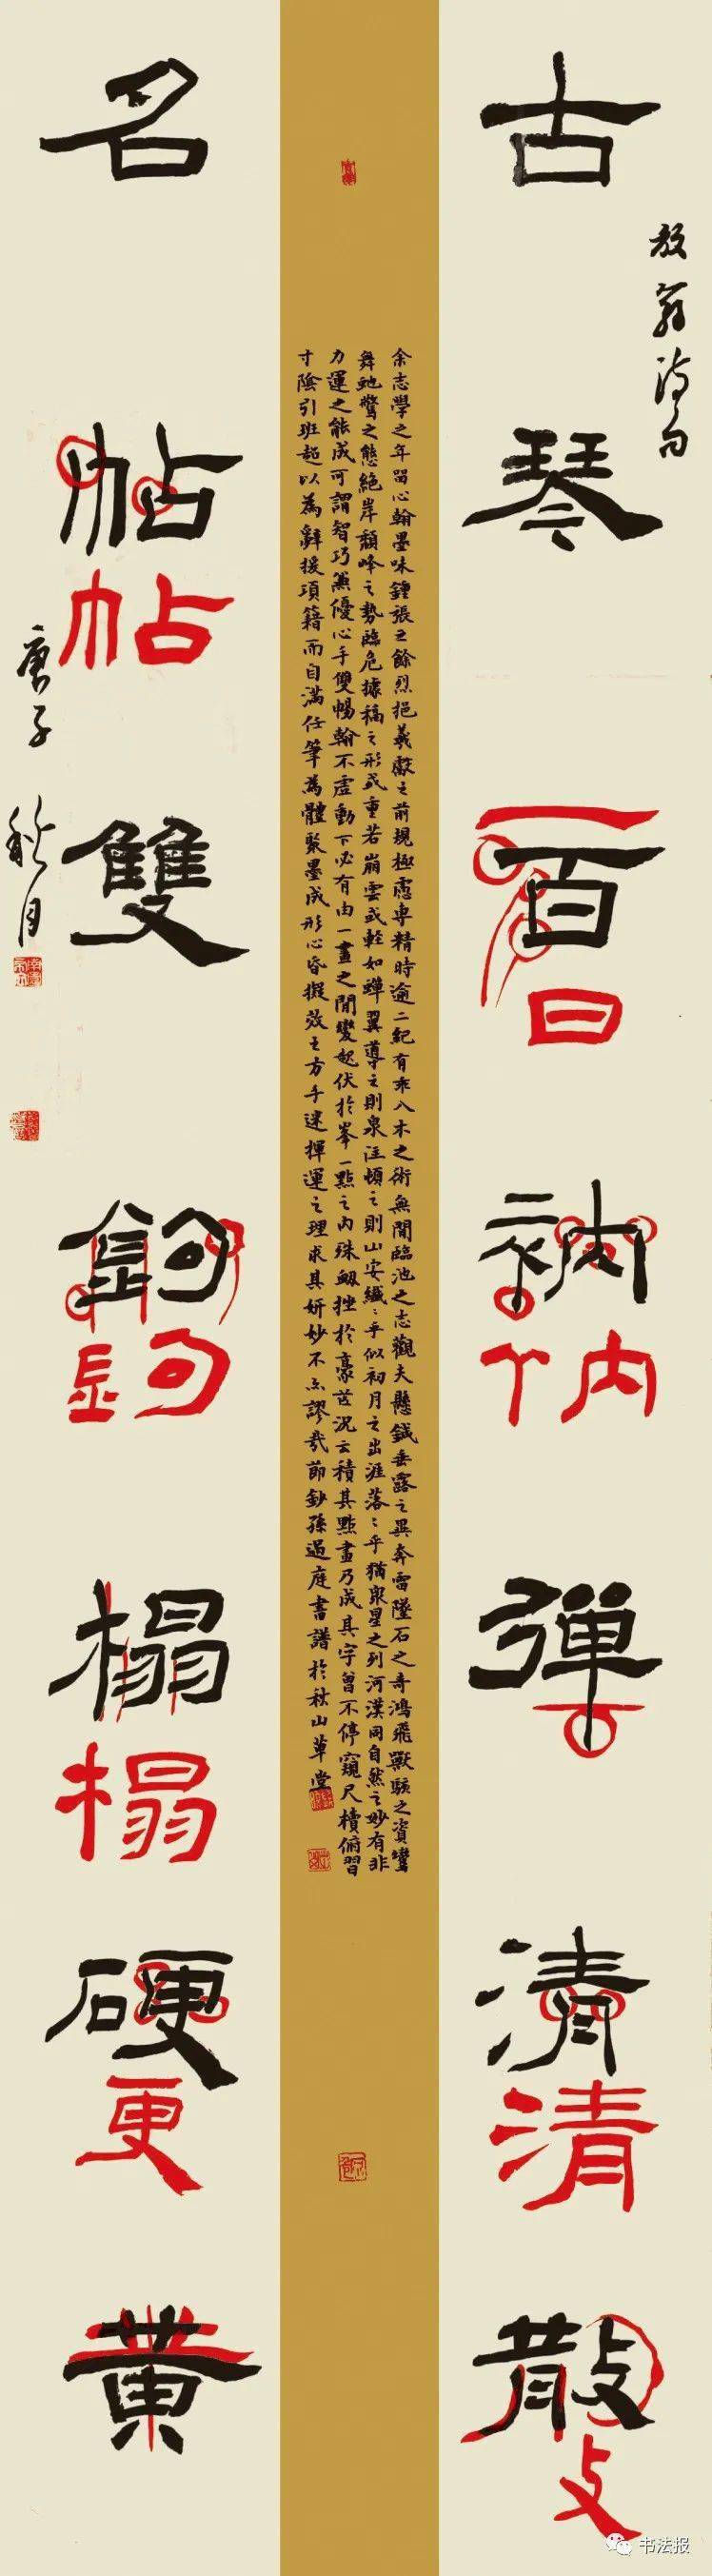 古琴百衲彈清散
放翁詩句
名帖雙鉤榻硬黄
庚子秋月
帖
鉤
榻
更
一
日
内
清
攵
余志學之年留心翰墨味鍾張之餘烈挹羲獻之前規極慮專精時逾二紀有乖入木之術無間臨池之志觀夫懸鍼垂露之異奔雷墜石之奇鴻飛獸駭之資鸞
舞蛇驚之態絕岸頹峰之勢臨危據槁之形或重若崩雲或輕如蟬翼導之則泉注頓之則山安纖纖乎似初月之出涯落落乎猶衆星之列河漢同自然之妙有非
力運之能成可謂智巧兼優心手雙暢翰不虛動下必有由一畫之間變起伏於峯一點之内殊衄挫於豪芒況云積其點畫乃成其字曾不停窺尺牘俯習
寸陰引班超以為辭援項籍而自滿任筆為體聚墨成形心昏擬效之方手迷揮運之理求其妍妙不亦謬哉節鈔孫過庭書譜於秋山草堂
书法报